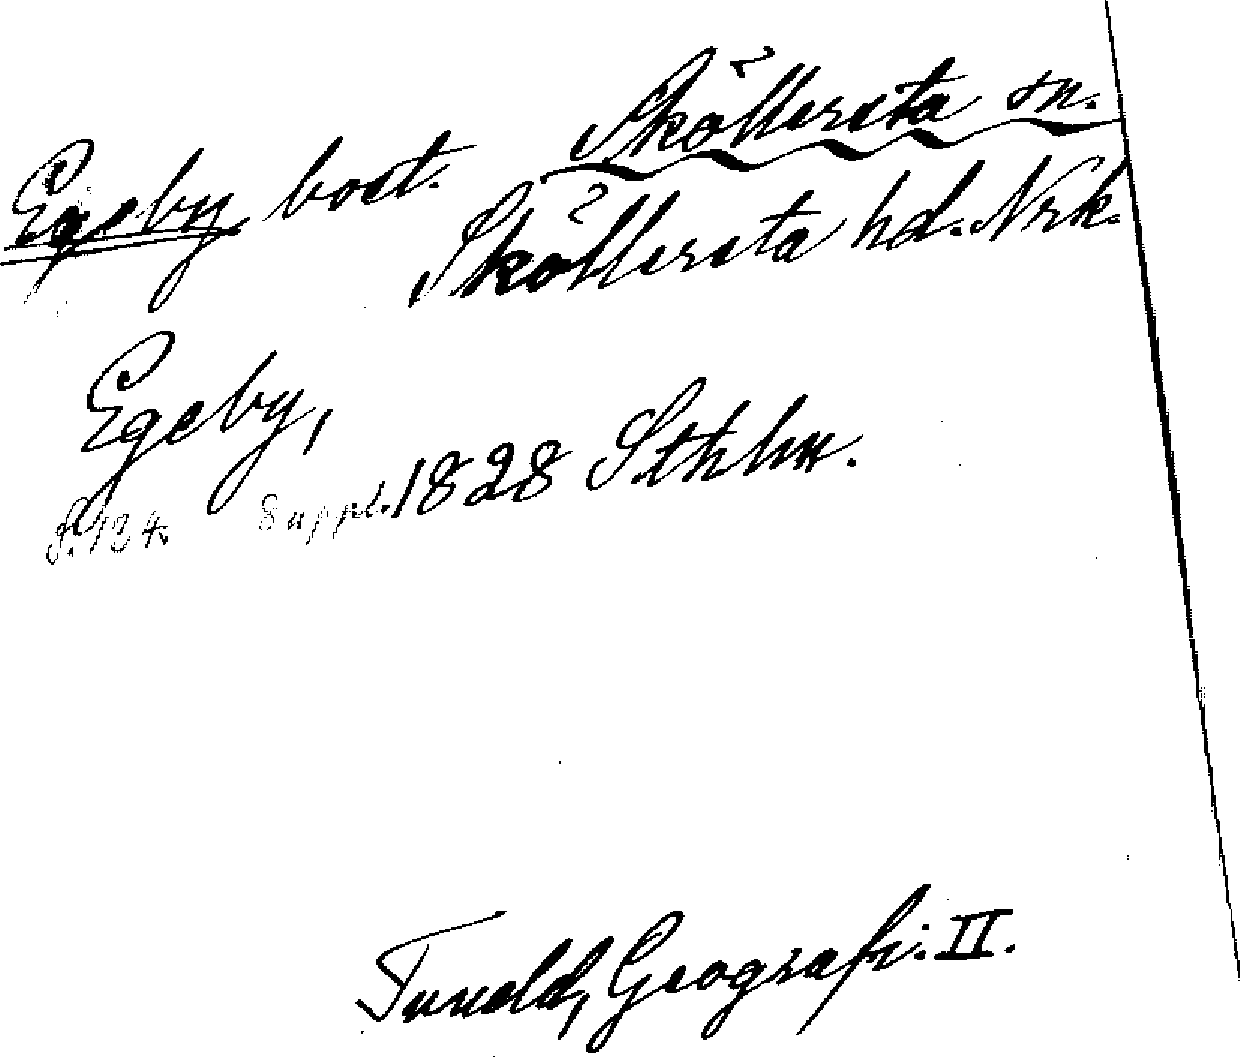 Egeby bost. Sköllersta sn.
Sköllersta hd. Nrk.
Egeby,
S. 124. Suppl. 1828 Sthlm.
Tuneld, Geografi. II.